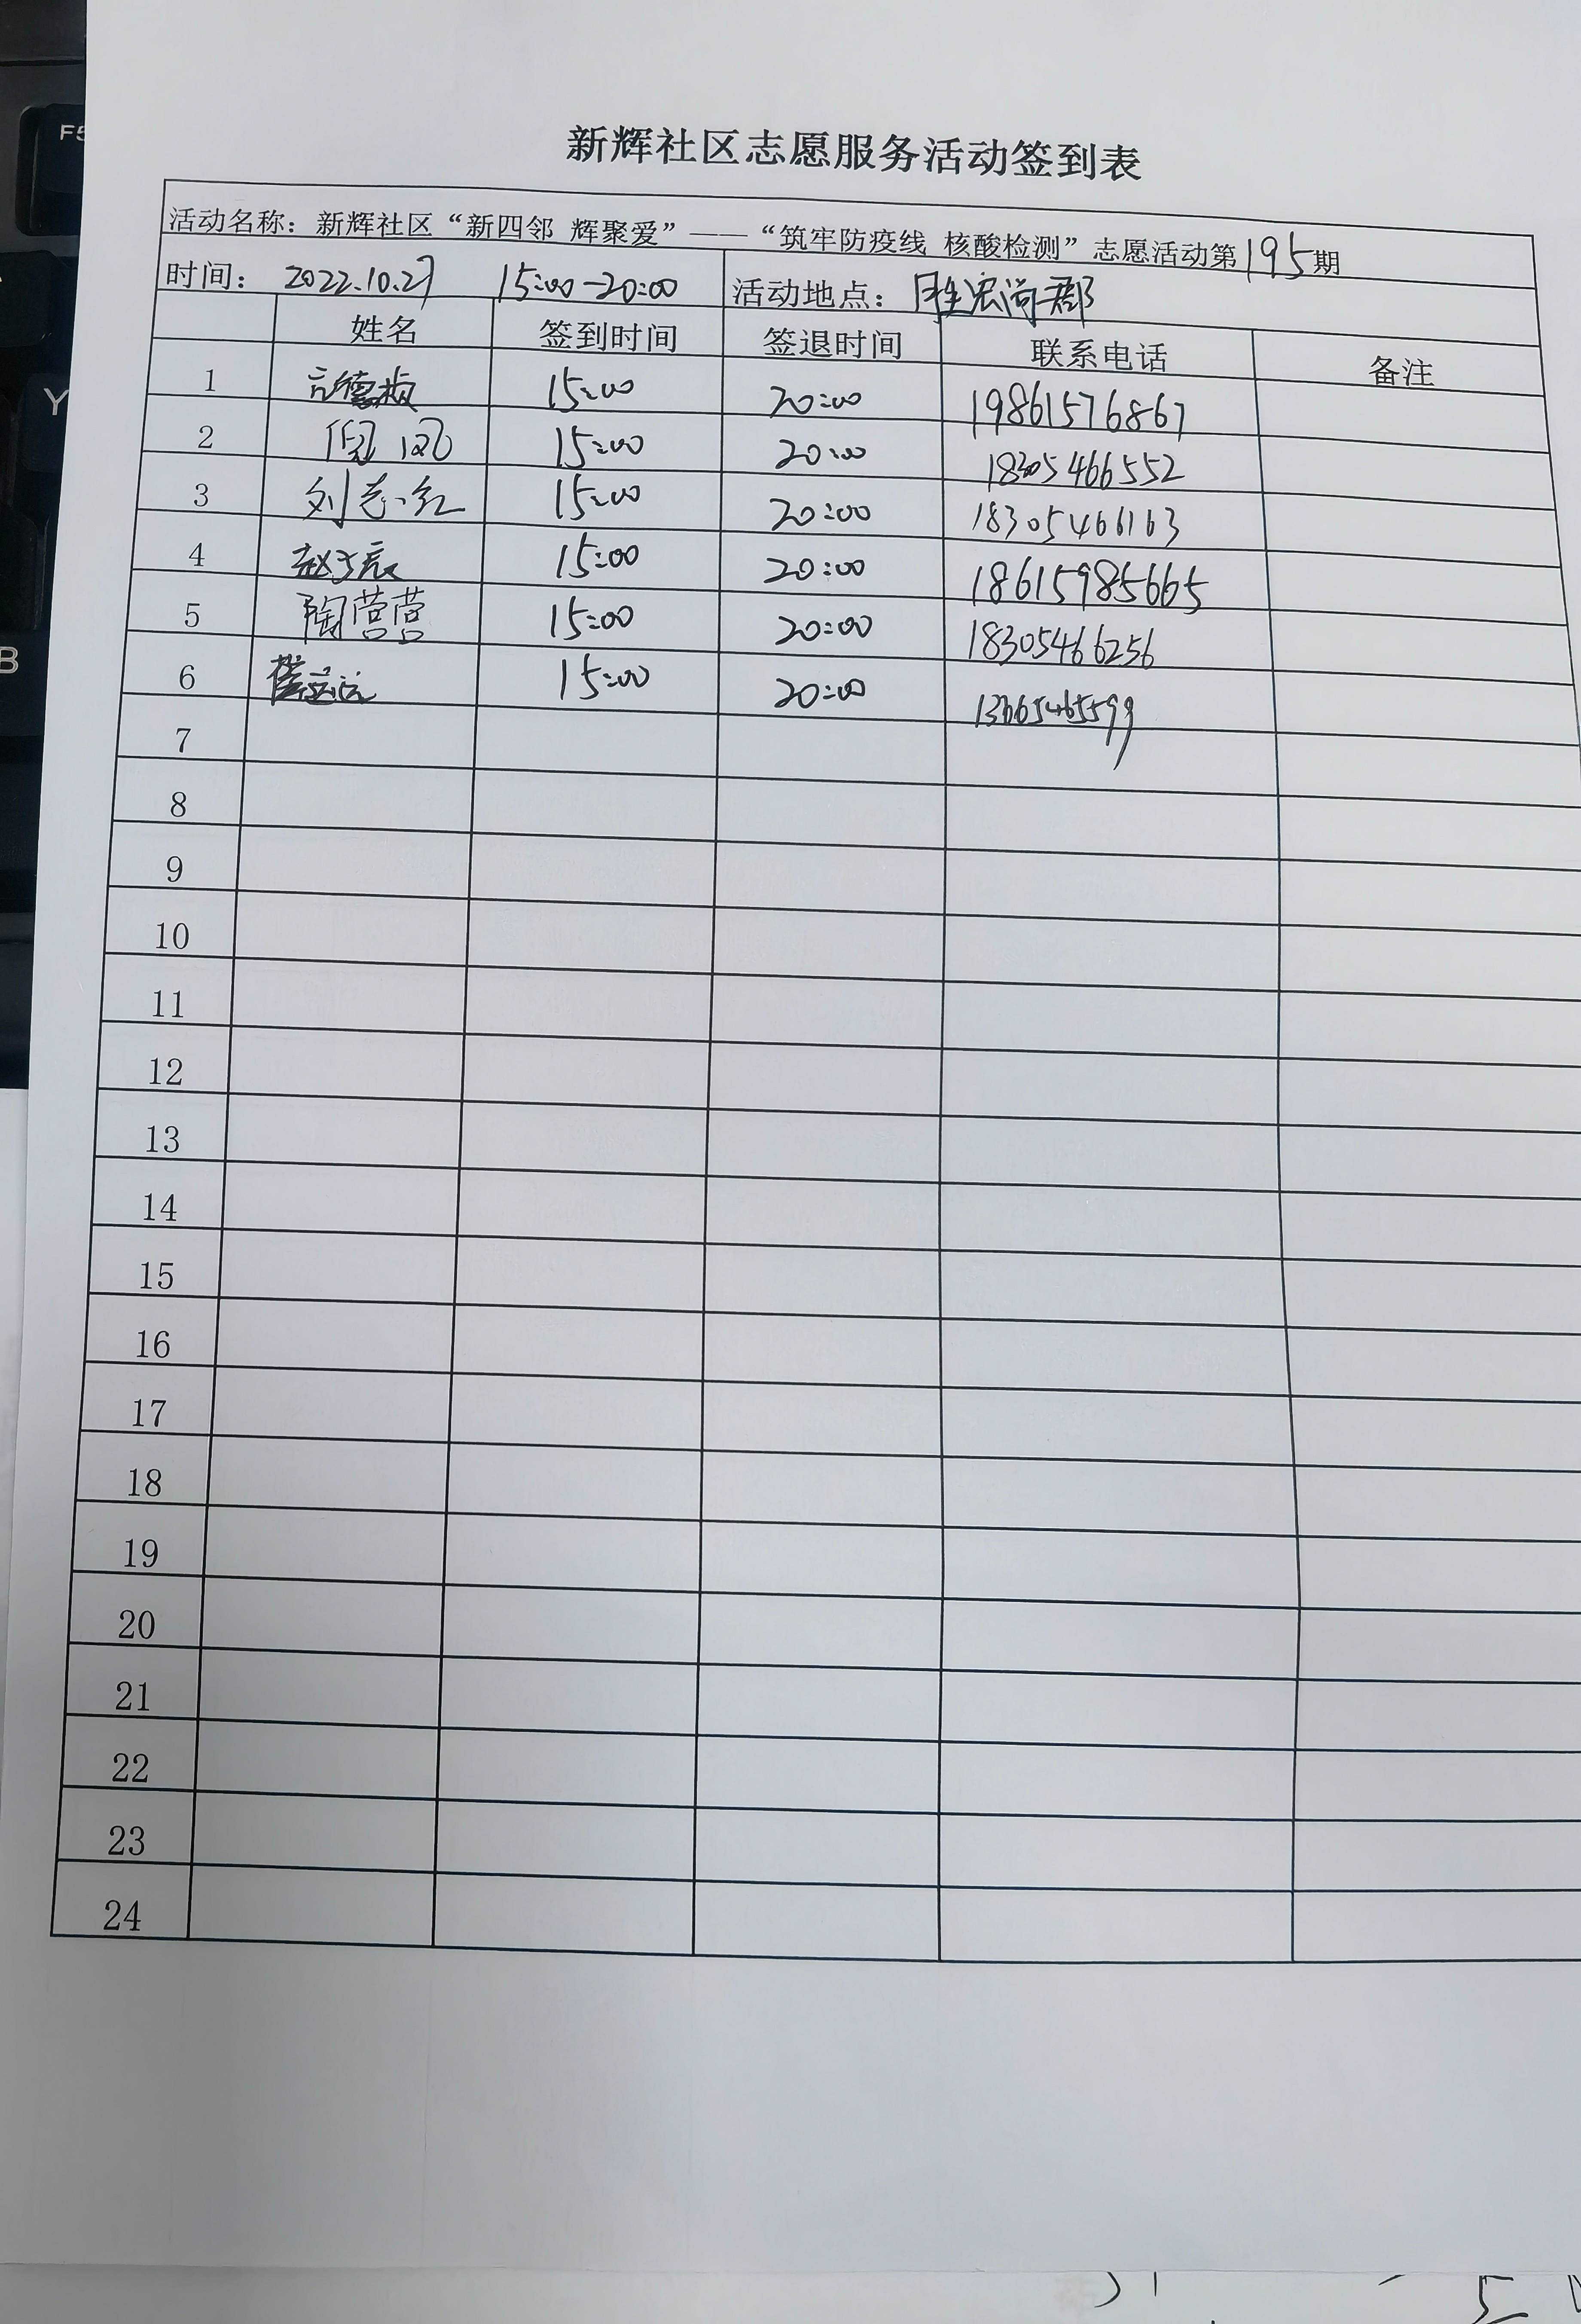 新辉社区志愿服务活动签到表
活动名称：新辉社区“新四邻 辉聚爱”——“筑牢防疫线 核酸检测”志愿活动第195期
时间：2022.10.27 15:00-20:00 活动地点：胜宏尚郡
姓名 签到时间 签退时间 联系电话 备注
1 15:00 20:00 19861576867
2 倪 15:00 20:00 18305466552
3 刘志红 15:00 20:00 18305466163
4 赵子辰 15:00 20:00 18615985665
5 陶营营 15:00 20:00 18305466256
6 15:00 20:00 13665465599
7
8
9
10
11
12
13
14
15
16
17
18
19
20
21
22
23
24
F5
Y
B